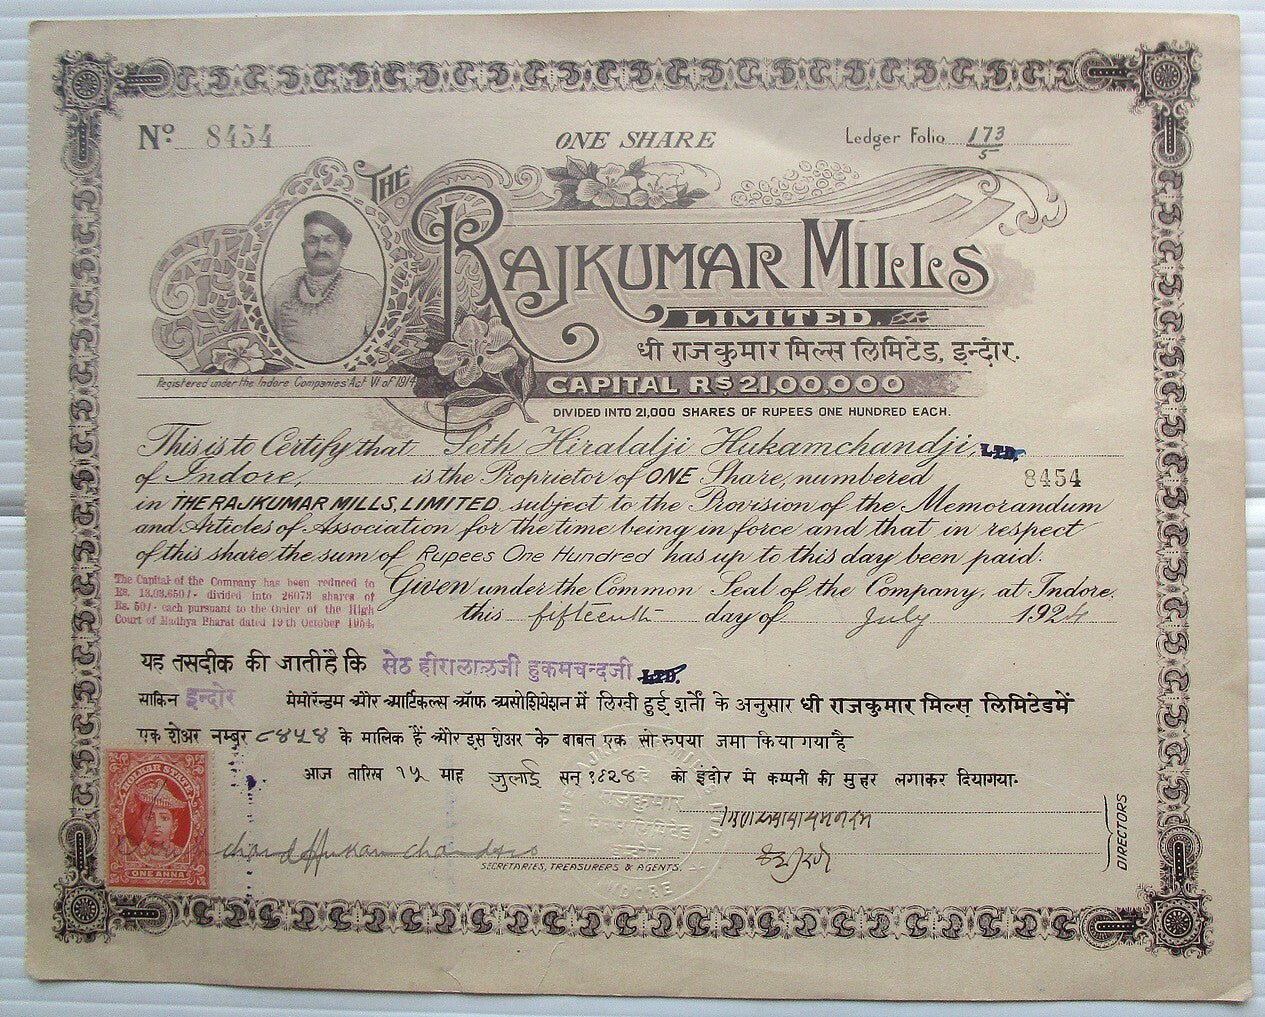 Nº 8454
ONE SHARE
Ledger Folio 173/5
THE
RAJKUMAR MILLS
LIMITED.
धी राजकुमार मिल्स लिमिटेड, इन्दोर.
Registered under the Indore Companies' Act VI of 1914
CAPITAL RS 21,00,000
DIVIDED INTO 21,000 SHARES OF RUPEES ONE HUNDRED EACH.
This is to Certify that Seth Hiralalji Hukamchandji, LTD.
of Indore, is the Proprietor of ONE Share, numbered 8454
in THE RAJKUMAR MILLS, LIMITED subject to the Provision of the Memorandum
and Articles of Association for the time being in force and that in respect
of this share the sum of Rupees One Hundred has up to this day been paid.
The Capital of the Company has been reduced to
Rs. 13,03,650/- divided into 26073 shares of
Rs. 50/- each pursuant to the Order of the High
Court of Madhya Bharat dated 19th October 1954.
Given under the Common Seal of the Company, at Indore.
this fifteenth day of July 1924
यह तसदीक की जाती है कि सेठ हीरालालजी हुकमचन्दजी LTD.
साकिन इन्दोर मेमोरॅन्डम और आर्टिकल्स ऑफ असोशियेशन में लिखी हुई शर्तों के अनुसार धी राजकुमार मिल्स लिमिटेडमें
एक शेअर नम्बर ८४५४ के मालिक हैं और इस शेअर के बाबत एक सो रुपया जमा किया गया है
आज तारिख १५ माह जुलाई सन् १९२४ को इंदोर मे कम्पनी की मुहर लगाकर दियागया.
HOLKAR STATE
ONE ANNA
राजकुमार
INDORE
SECRETARIES, TREASURERS & AGENTS.
DIRECTORS